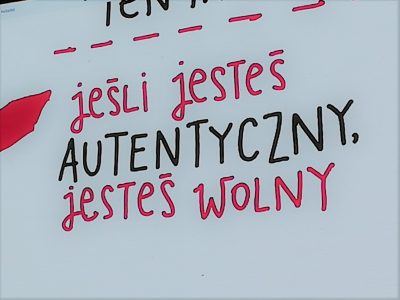 TEN
jeśli jesteś
AUTENTYCZNY,
jesteś wOLNY